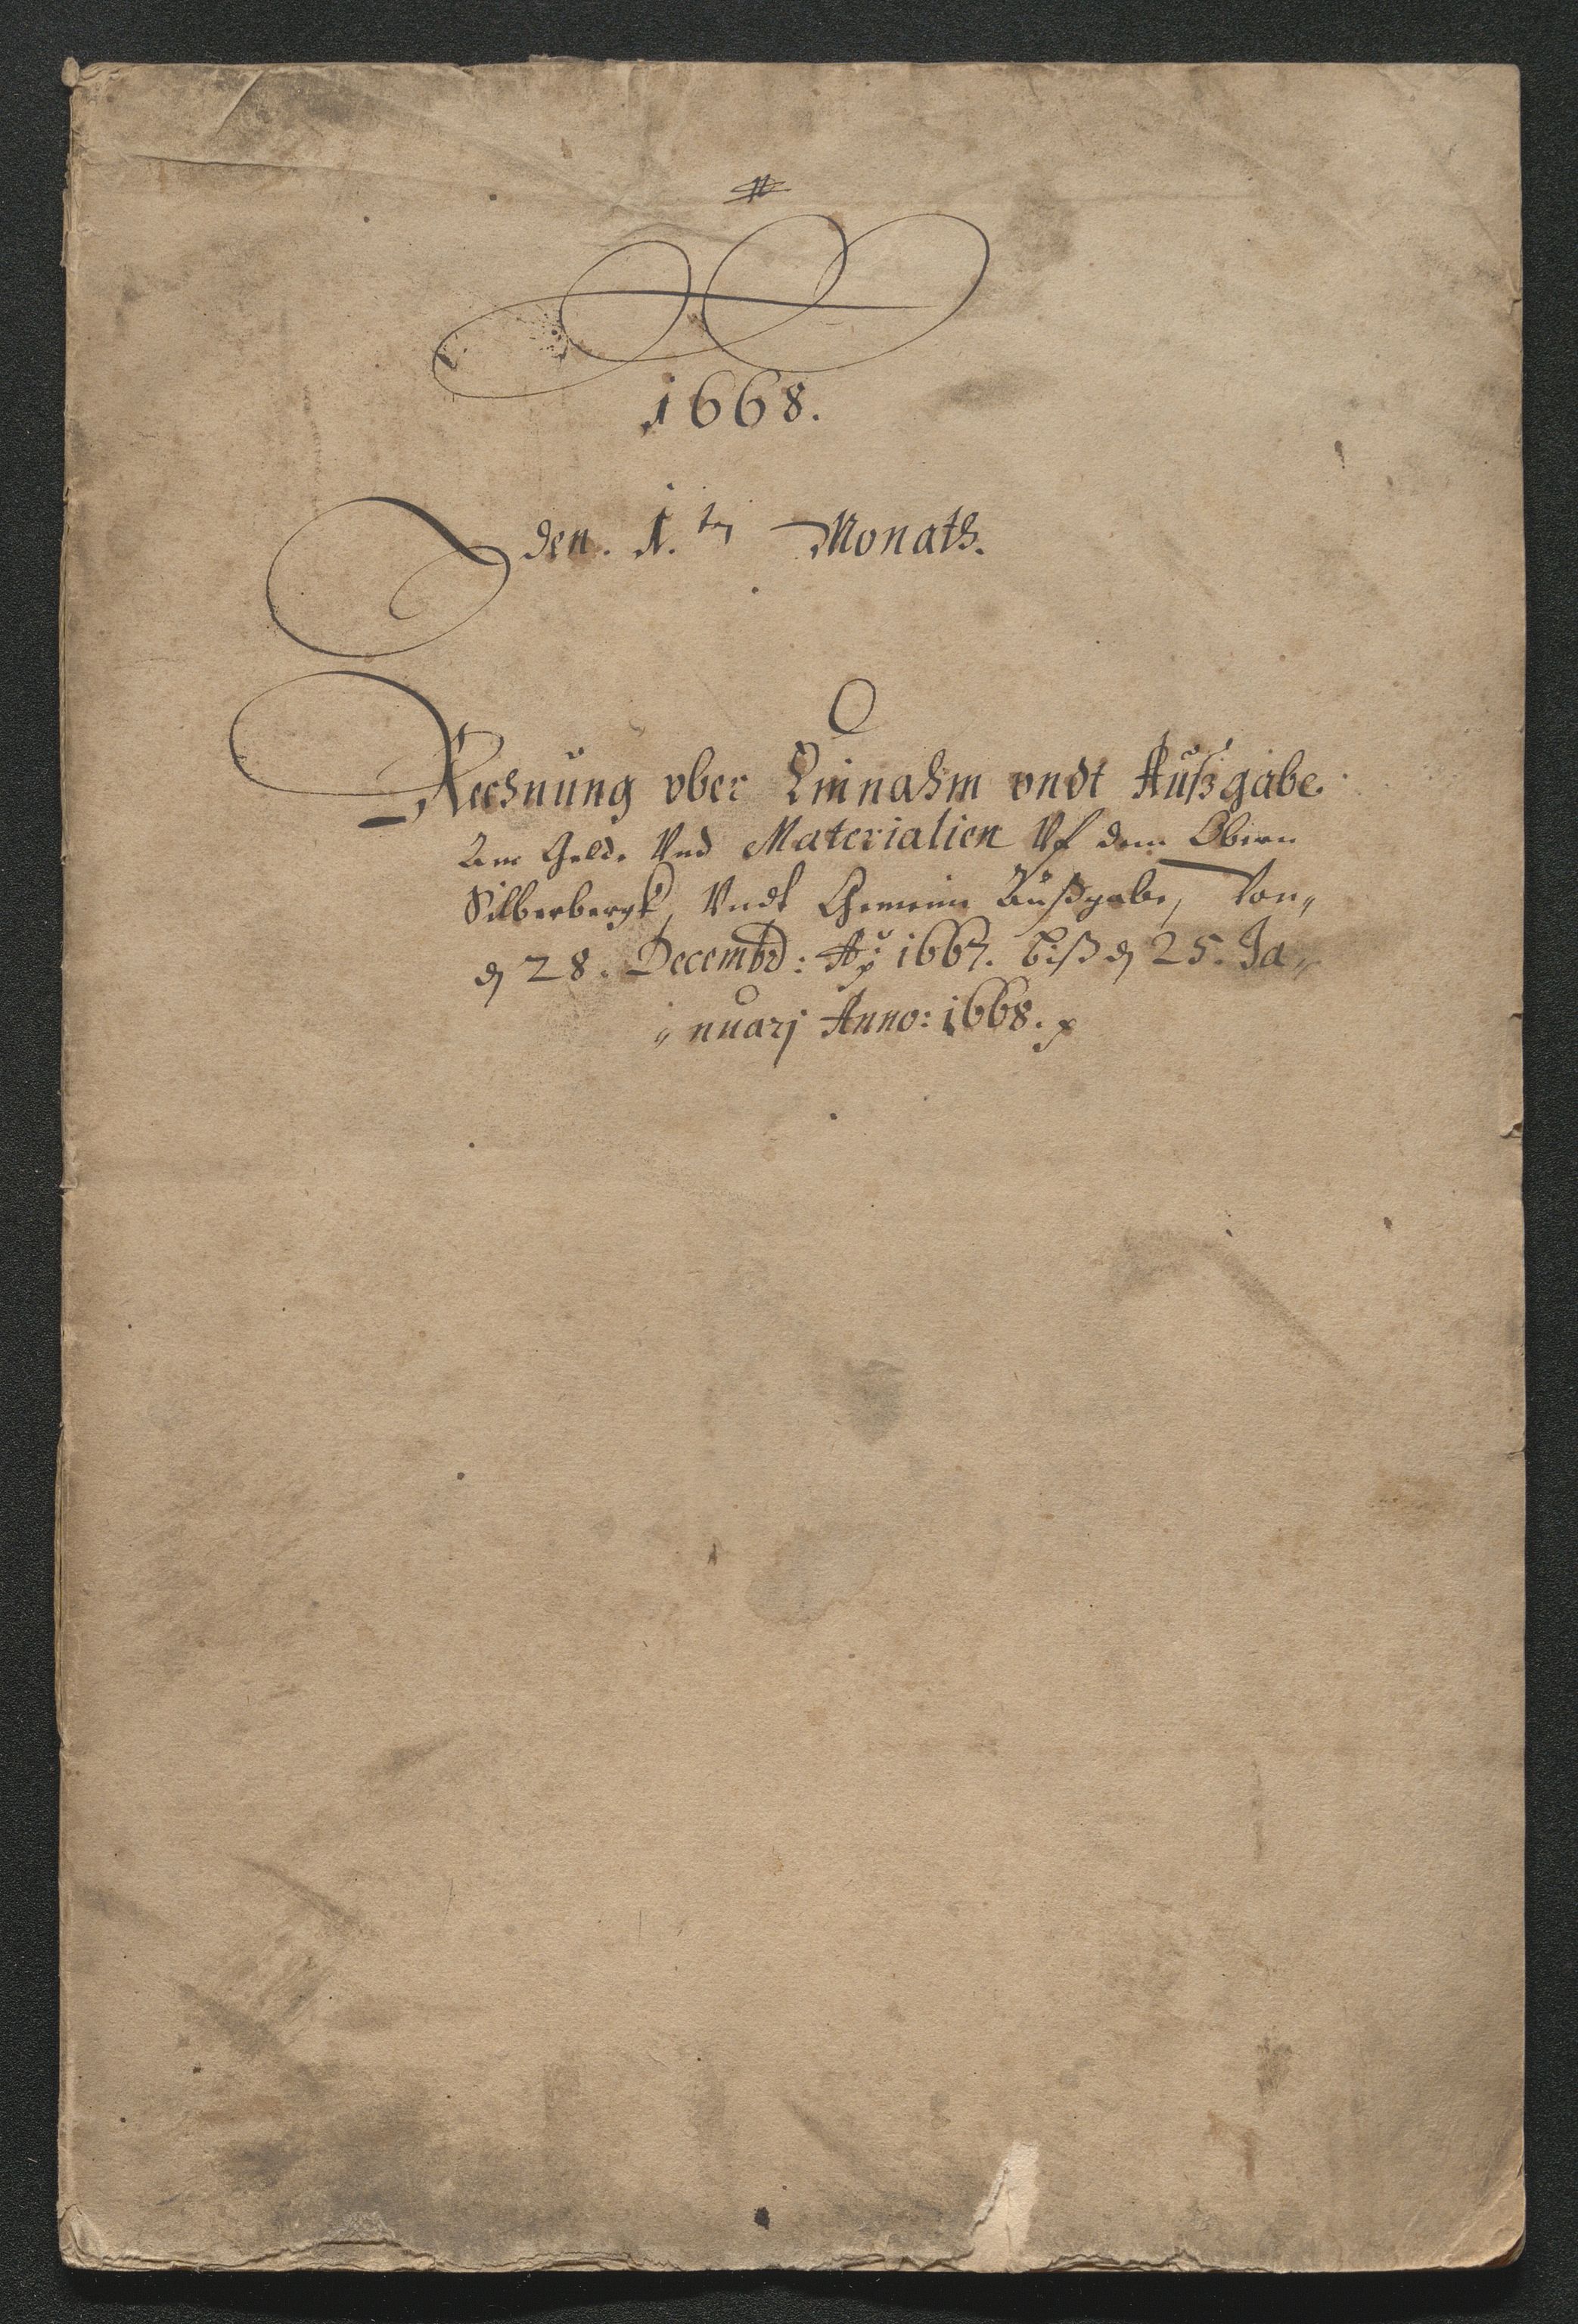 1668.
Den. 1. ten Monath.
Rechnung vber Einnahm vndt Außgabe
Ann Gelde Vnd Materialien Vf dem Obern
Silberbergk, Vndt Gemeine Außgabe, Von„
dn 28. Decembr: Ao 1667. biß dn 25. Ja„
„nuarj Anno: 1668.